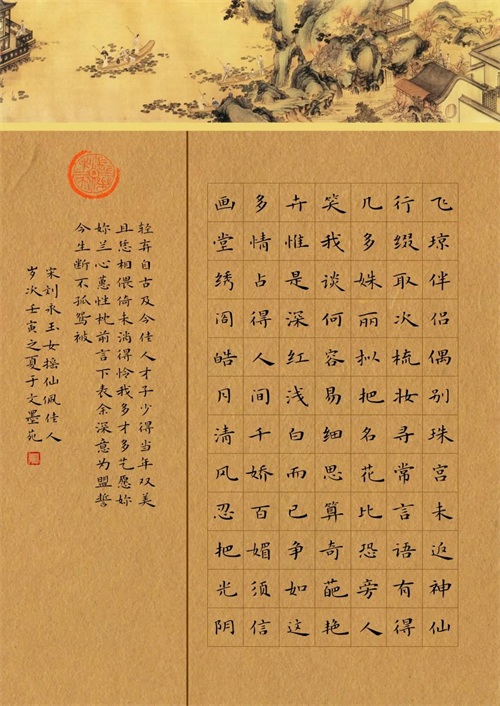 飞琼伴侣偶别珠宫未返神仙
行缀取次梳妆寻常言语有得
几多姝丽拟把名花比恐旁人
笑我谈何容易细思算奇葩艳
卉惟是深红浅白而已争如这
多情占得人间千娇百媚须信
画堂绣阁皓月清风忍把光阴
轻弃自古及今佳人才子少得当年双美
且恁相偎倚未消得怜我多才多艺愿妳
妳兰心蕙性枕前言下表余深意为盟誓
今生断不孤鸳被
宋刘永玉女摇仙佩佳人
岁次壬寅之夏于文墨苑